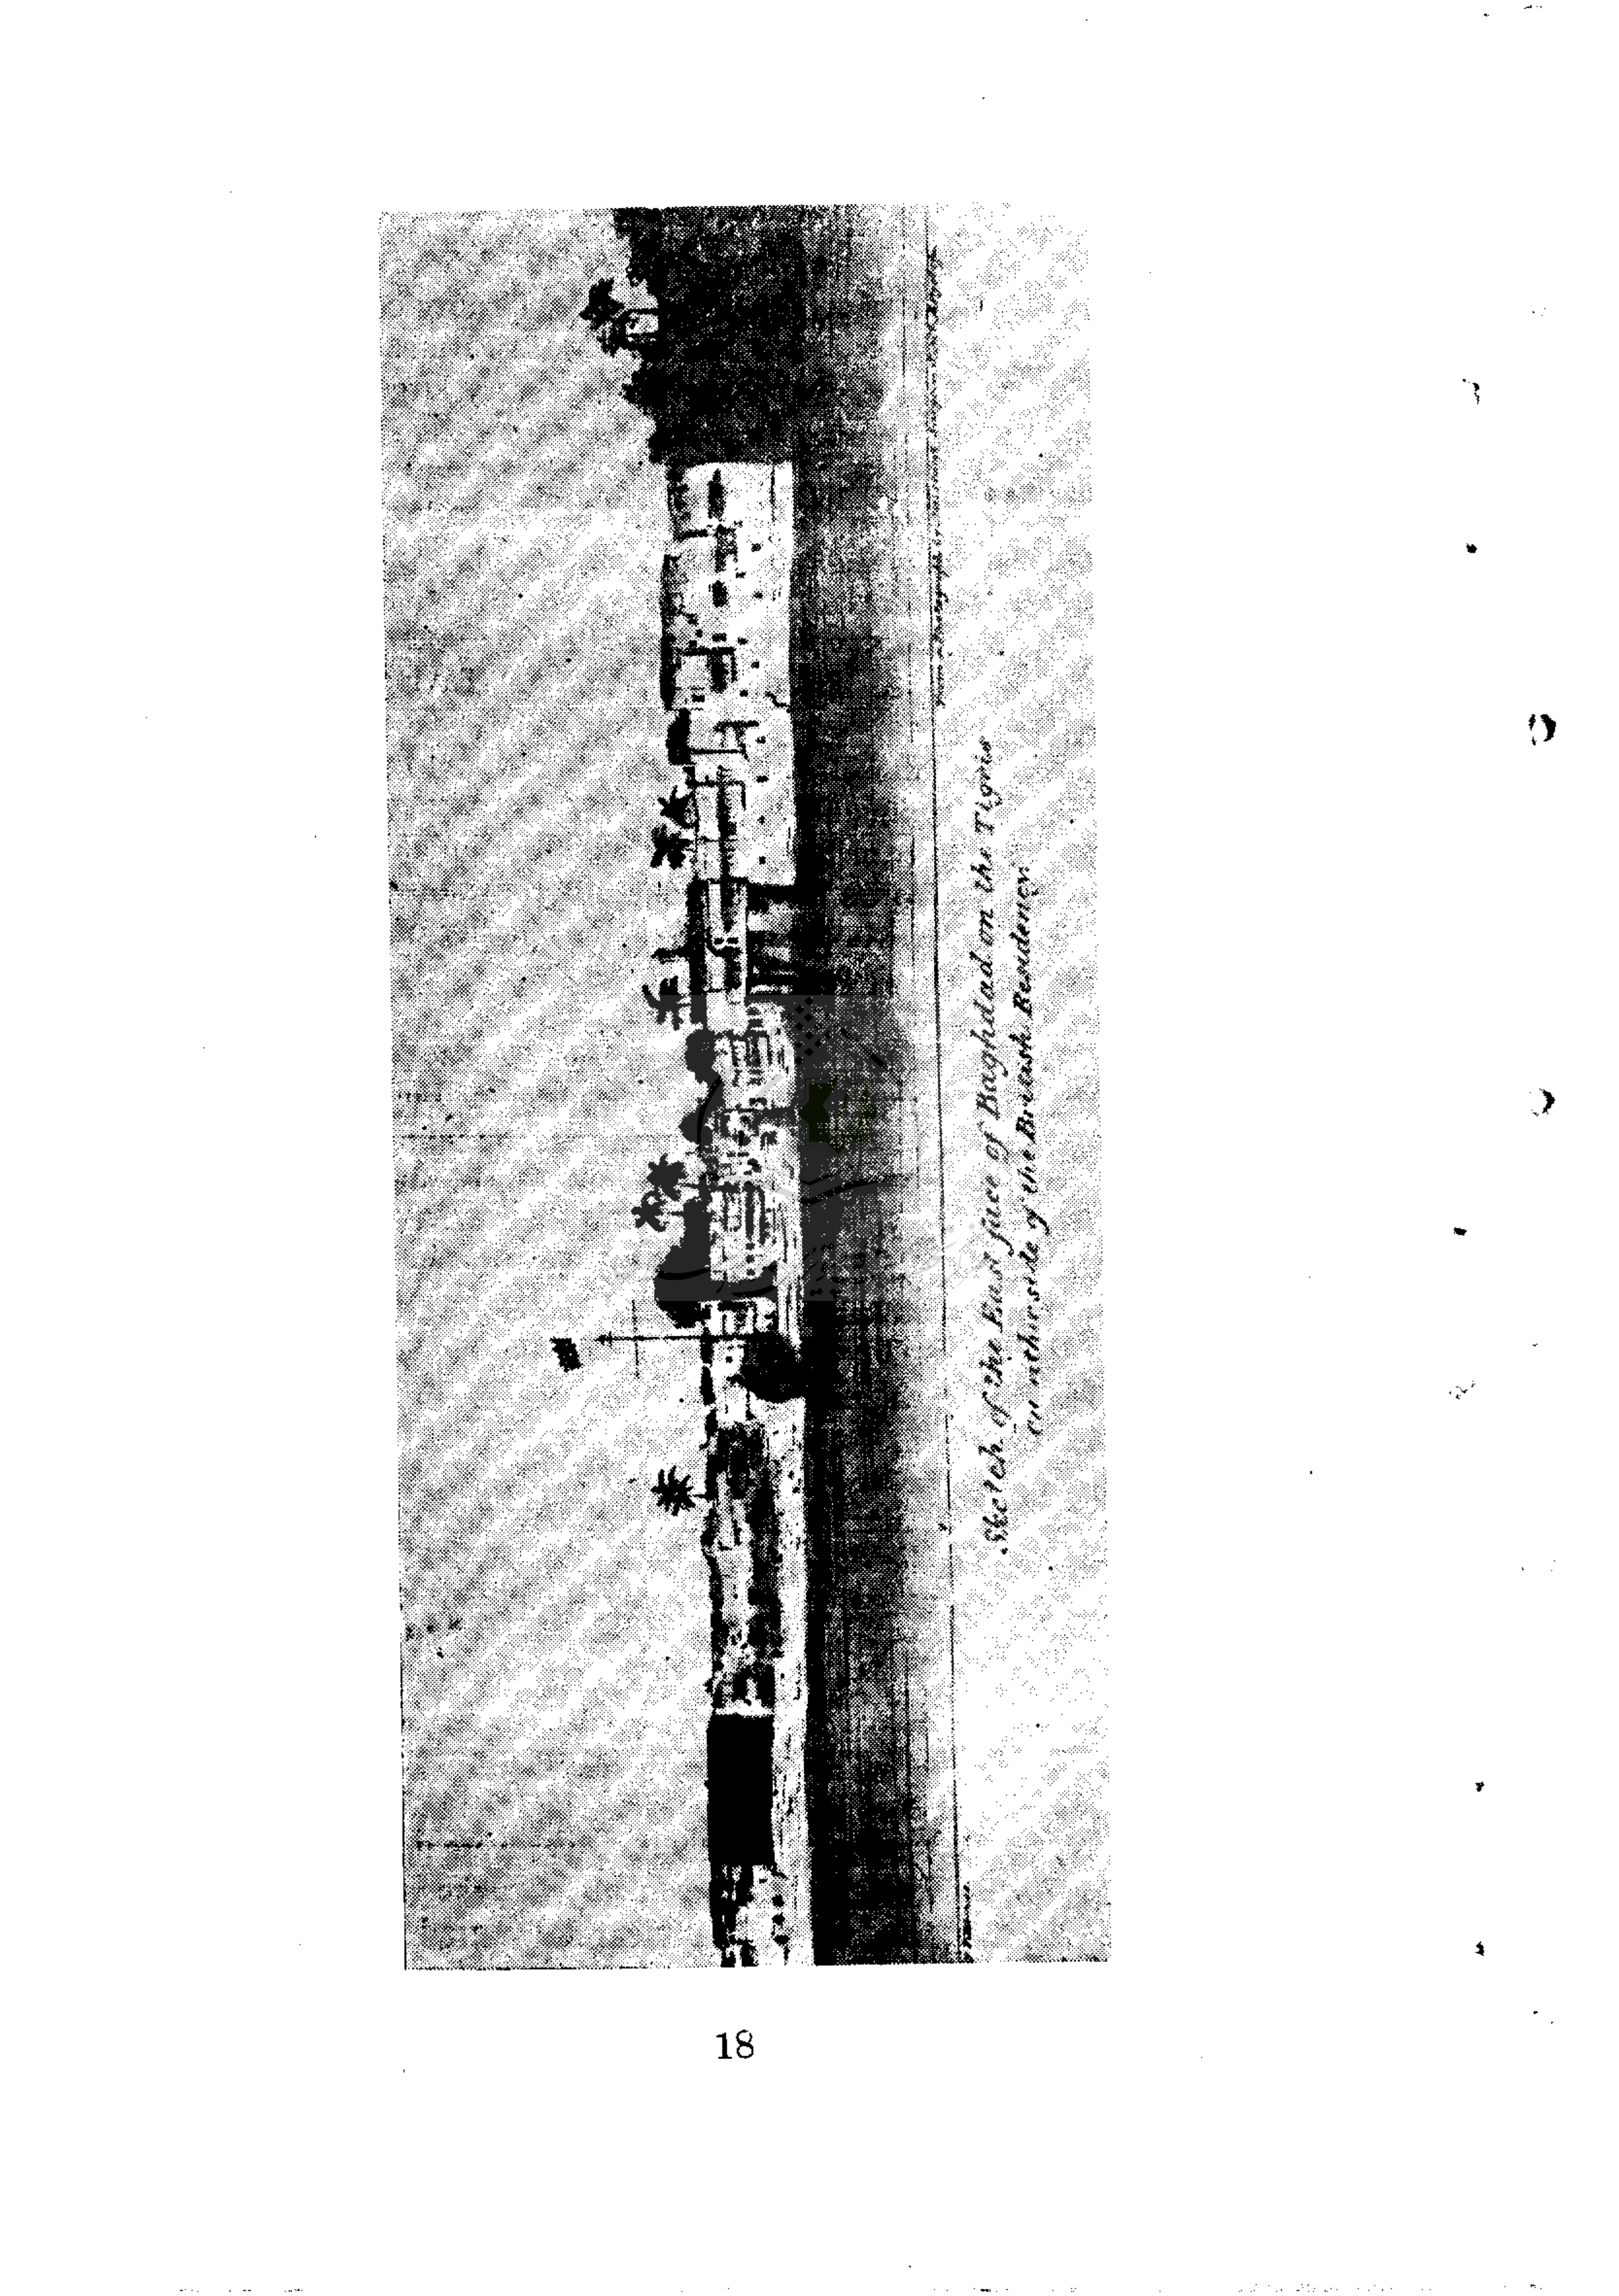 Sketch of the East face of Baghdad on the Tigris
on either side of the British Residency
18